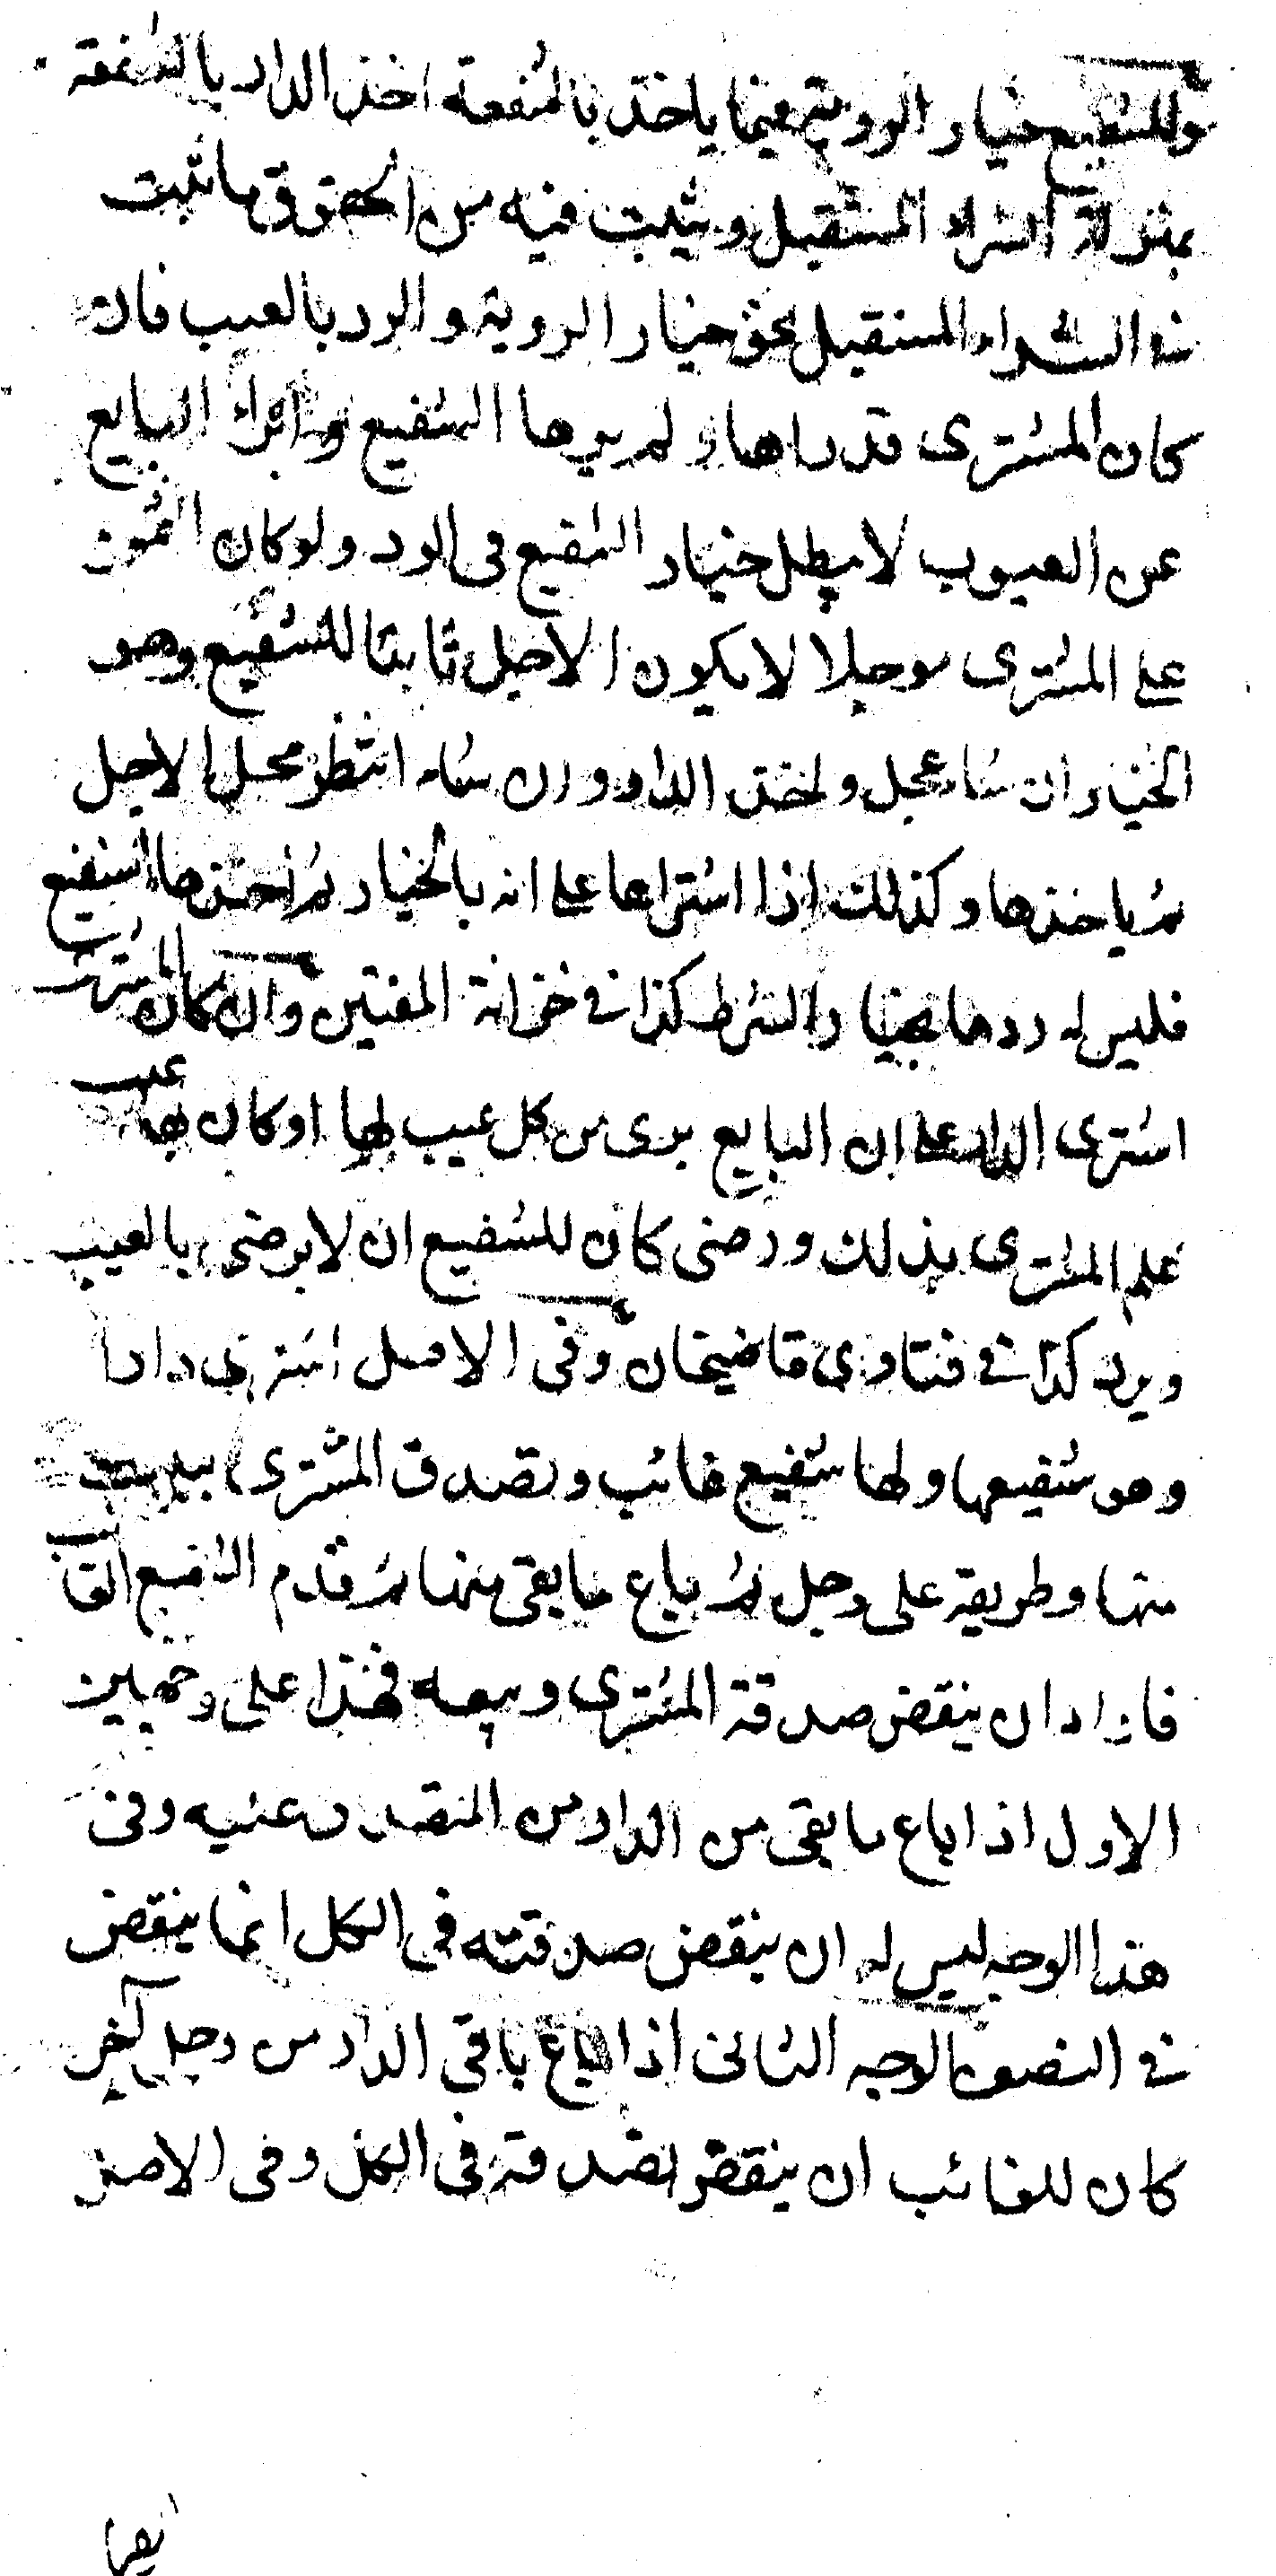 وللشفيع خيار الروية فيما ياخذ بالشفعة اخذ الدار بالشفعة
بمنزلة الشراء المستقبل ويثبت فيه من الحقوق ما يثبت
في الشراء المستقبل نحو خيار الروية والرد بالعيب فان
كان المشترى قد راها ولم يرها الشفيع وابراء البايع
عن العيوب لا يبطل خيار الشفيع في الرد ولو كان الثمن
على المشترى موجلا لا يكون الاجل ثابتا للشفيع وهو
الخيار ان شاء عجل واخذ الدار وان شاء انتظر محل الاجل
ثم ياخذها وكذلك اذا اشتراها على انه بالخيار ثم اخذها الشفيع
فليس له ردها بخيار الشرط كذا في خزانة المفتين وان كان المشترى
اشترى الدار على ان البايع برى من كل عيب لها او كان بها عيب
علم المشترى بذلك ورضى كان للشفيع ان لا يرضى بالعيب
ويرد كذا في فتاوى قاضيخان وفي الاصل اشترى دارا
وهو شفيعها ولها شفيع غائب وتصدق المشترى ببيت
منها وطريقه على رجل ثم باع ما بقى منها ثم قدم الشفيع الغائب
فاراد ان ينقض صدقة المشترى وبيعه فهذا على وجهين
الاول اذا باع ما بقى من الدار من المتصدق عليه وفى
هذا الوجه ليس له ان ينقض صدقته في الكل انما ينقض
في النصف الوجه الثانى اذا باع باقى الدار من رجل آخر
كان للغائب ان ينقض الصدقة في الكل وفى الاصل